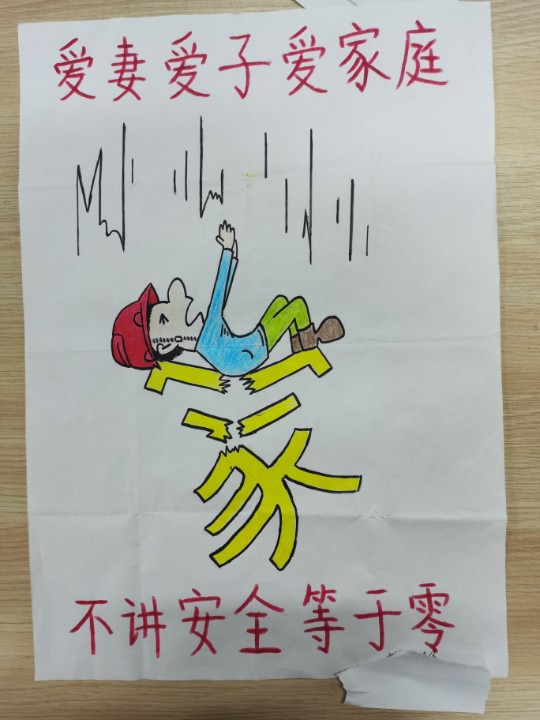 爱妻爱子爱家庭
家
不讲安全等于零